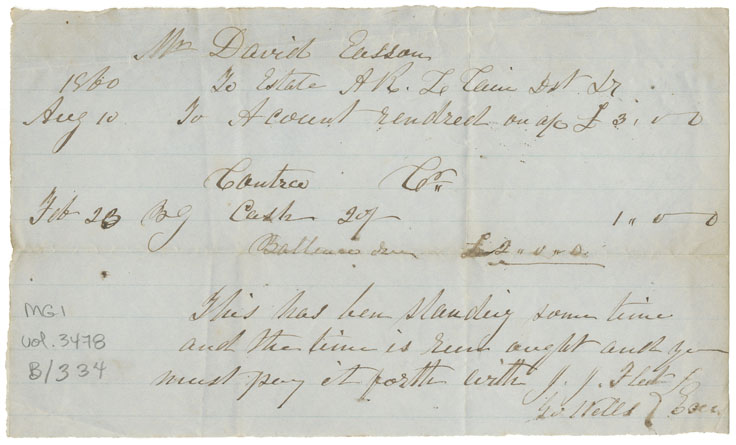 Mr David Easson
1860 To Estate A R. Le Cain Dst Dr
Aug 10 To Acount rendred on ap £ 3 " 0 0
Contra Cr
Feb 23 By Cash 20/ 1 " 0 0
Ballance due £ 2 " 0 " 0
This has ben standig some time
and the time is run ought and you
must pay it forth with J. J.
Wells
MG1
vol. 3478
B/334